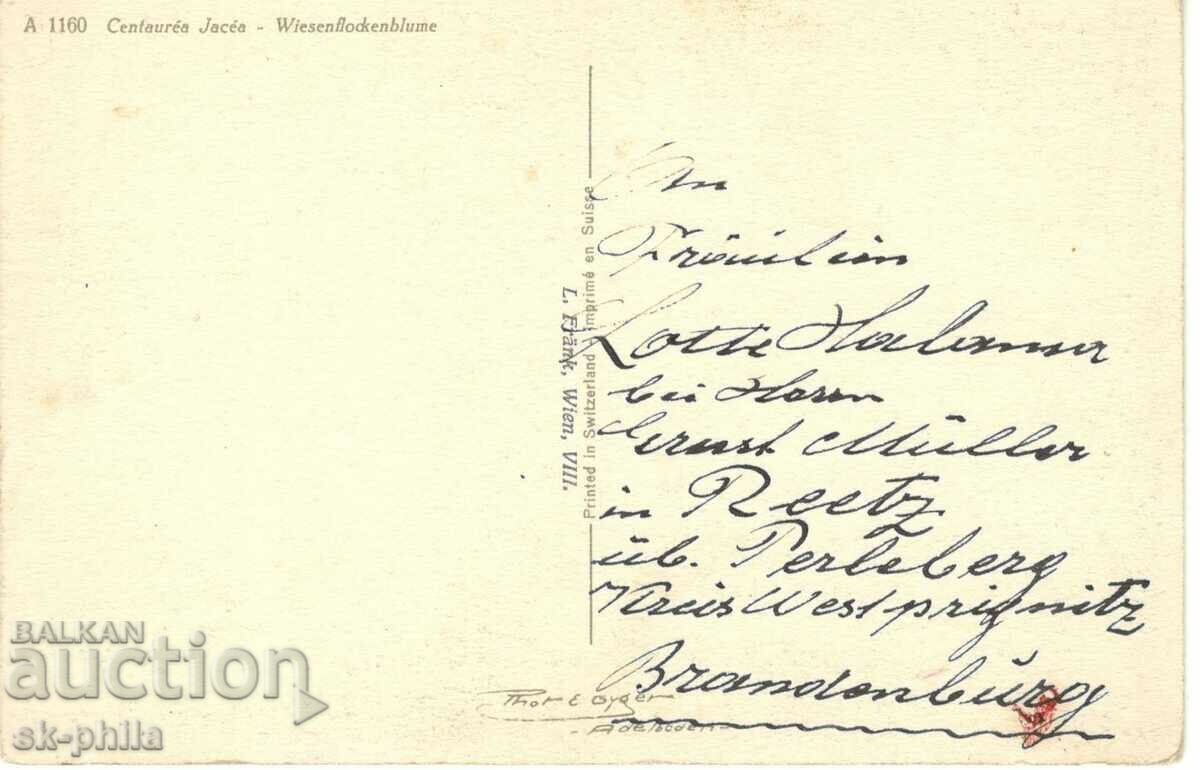 A 1160 Centauréa Jacéa - Wiesenflockenblume
Printed in Switzerland - Imprimé en Suisse
L. Fränk, Wien, VIII.
An
Fräulein
Lotte
bei Herrn
Ernst Müller
in Reetz
üb. Perleberg
Kreis Westprignitz
Brandenbürg
Phot E Gyger
- Adelboden -
BALKAN
auction
sk-phila